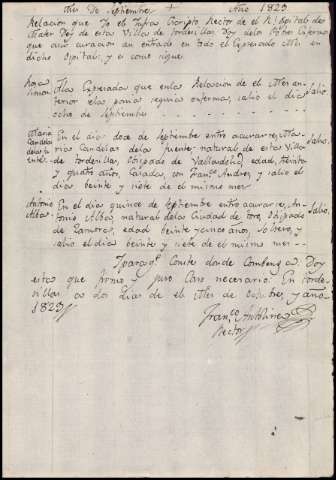 Mes de Septiembre + Año 1823
Relacion que Yo el Infra Scripto Rector de el Rl. Ospital de
Mater Dey de esta Villa de tordesillas, Doy de los Pobres Enfermos
que a su curacion an entrado en todo el Espresado Mes en
dicho Ospital, y es como sigue
Rosa Simon
Ylla Espresada que en la Relacion de el Mes an-
terior esta puesta seguia enferma, salio el dia
ocho de Septiembre
salio
Maria Candelas de la fuente
En el dia doce de Septiembre entro a curarse, Ma-
ria Candelas de la fuente, natural de esta Villa
de tordesillas, Obispado de Valladolid, edad, treinta
y quatro años, Casada, con Franco. Andres, y salio el
dia beinte y siete de el mismo mes
Salio
Antonio Alba
En el dia quince de Septiembre entro a curarse, An-
tonio Alba, natural de la Ciudad de toro, Obispado
de Zamora, edad beinte y cinco años, Soltero, y
salio el dia beinte y siete de el mismo mes
Salio
Y para qe. Conste donde Combenga, Doy
esta que firmo y juro Caso necesario. En torde-
sillas a dos dias de el Mes de Octubre, y año
1823
Franco. Antolinez
Rector